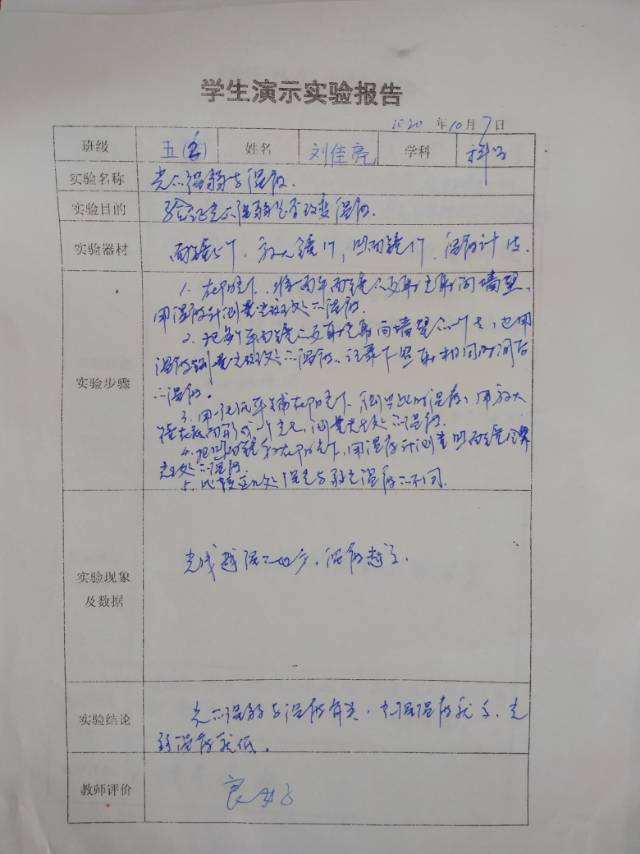 学生演示实验报告
2020 年 10 月 7 日
班级 五(2) 姓名 刘佳亮 学科 科学
实验名称 光的强弱与温度.
实验目的 验证光的强弱是否改变温度.
实验器材 面镜 个, 放大镜1个, 凹面镜1个, 温度计 支.
实验步骤
1. 在阳光下, 将 平面镜 反射光射向墙壁,
用温度计测量光斑处的温度.
2. 把 平面镜 反射光射向墙壁的一个点, 也用
温度计测量光斑处的温度. 记录下照射相同时间后
的温度.
3. 用一张纸平铺在阳光下. 测出此时温度, 用放大
镜 形成一个光点, 测量光点处的温度.
4. 把凹面镜放在阳光下, 用温度计测量凹面镜聚
光处的温度.
5. 比较 处强光与弱光温度的不同.
实验现象
及数据
光线越强的地方, 温度越高.
实验结论 光的强弱与温度有关, 光强温度就高, 光
弱温度就低.
教师评价 良好